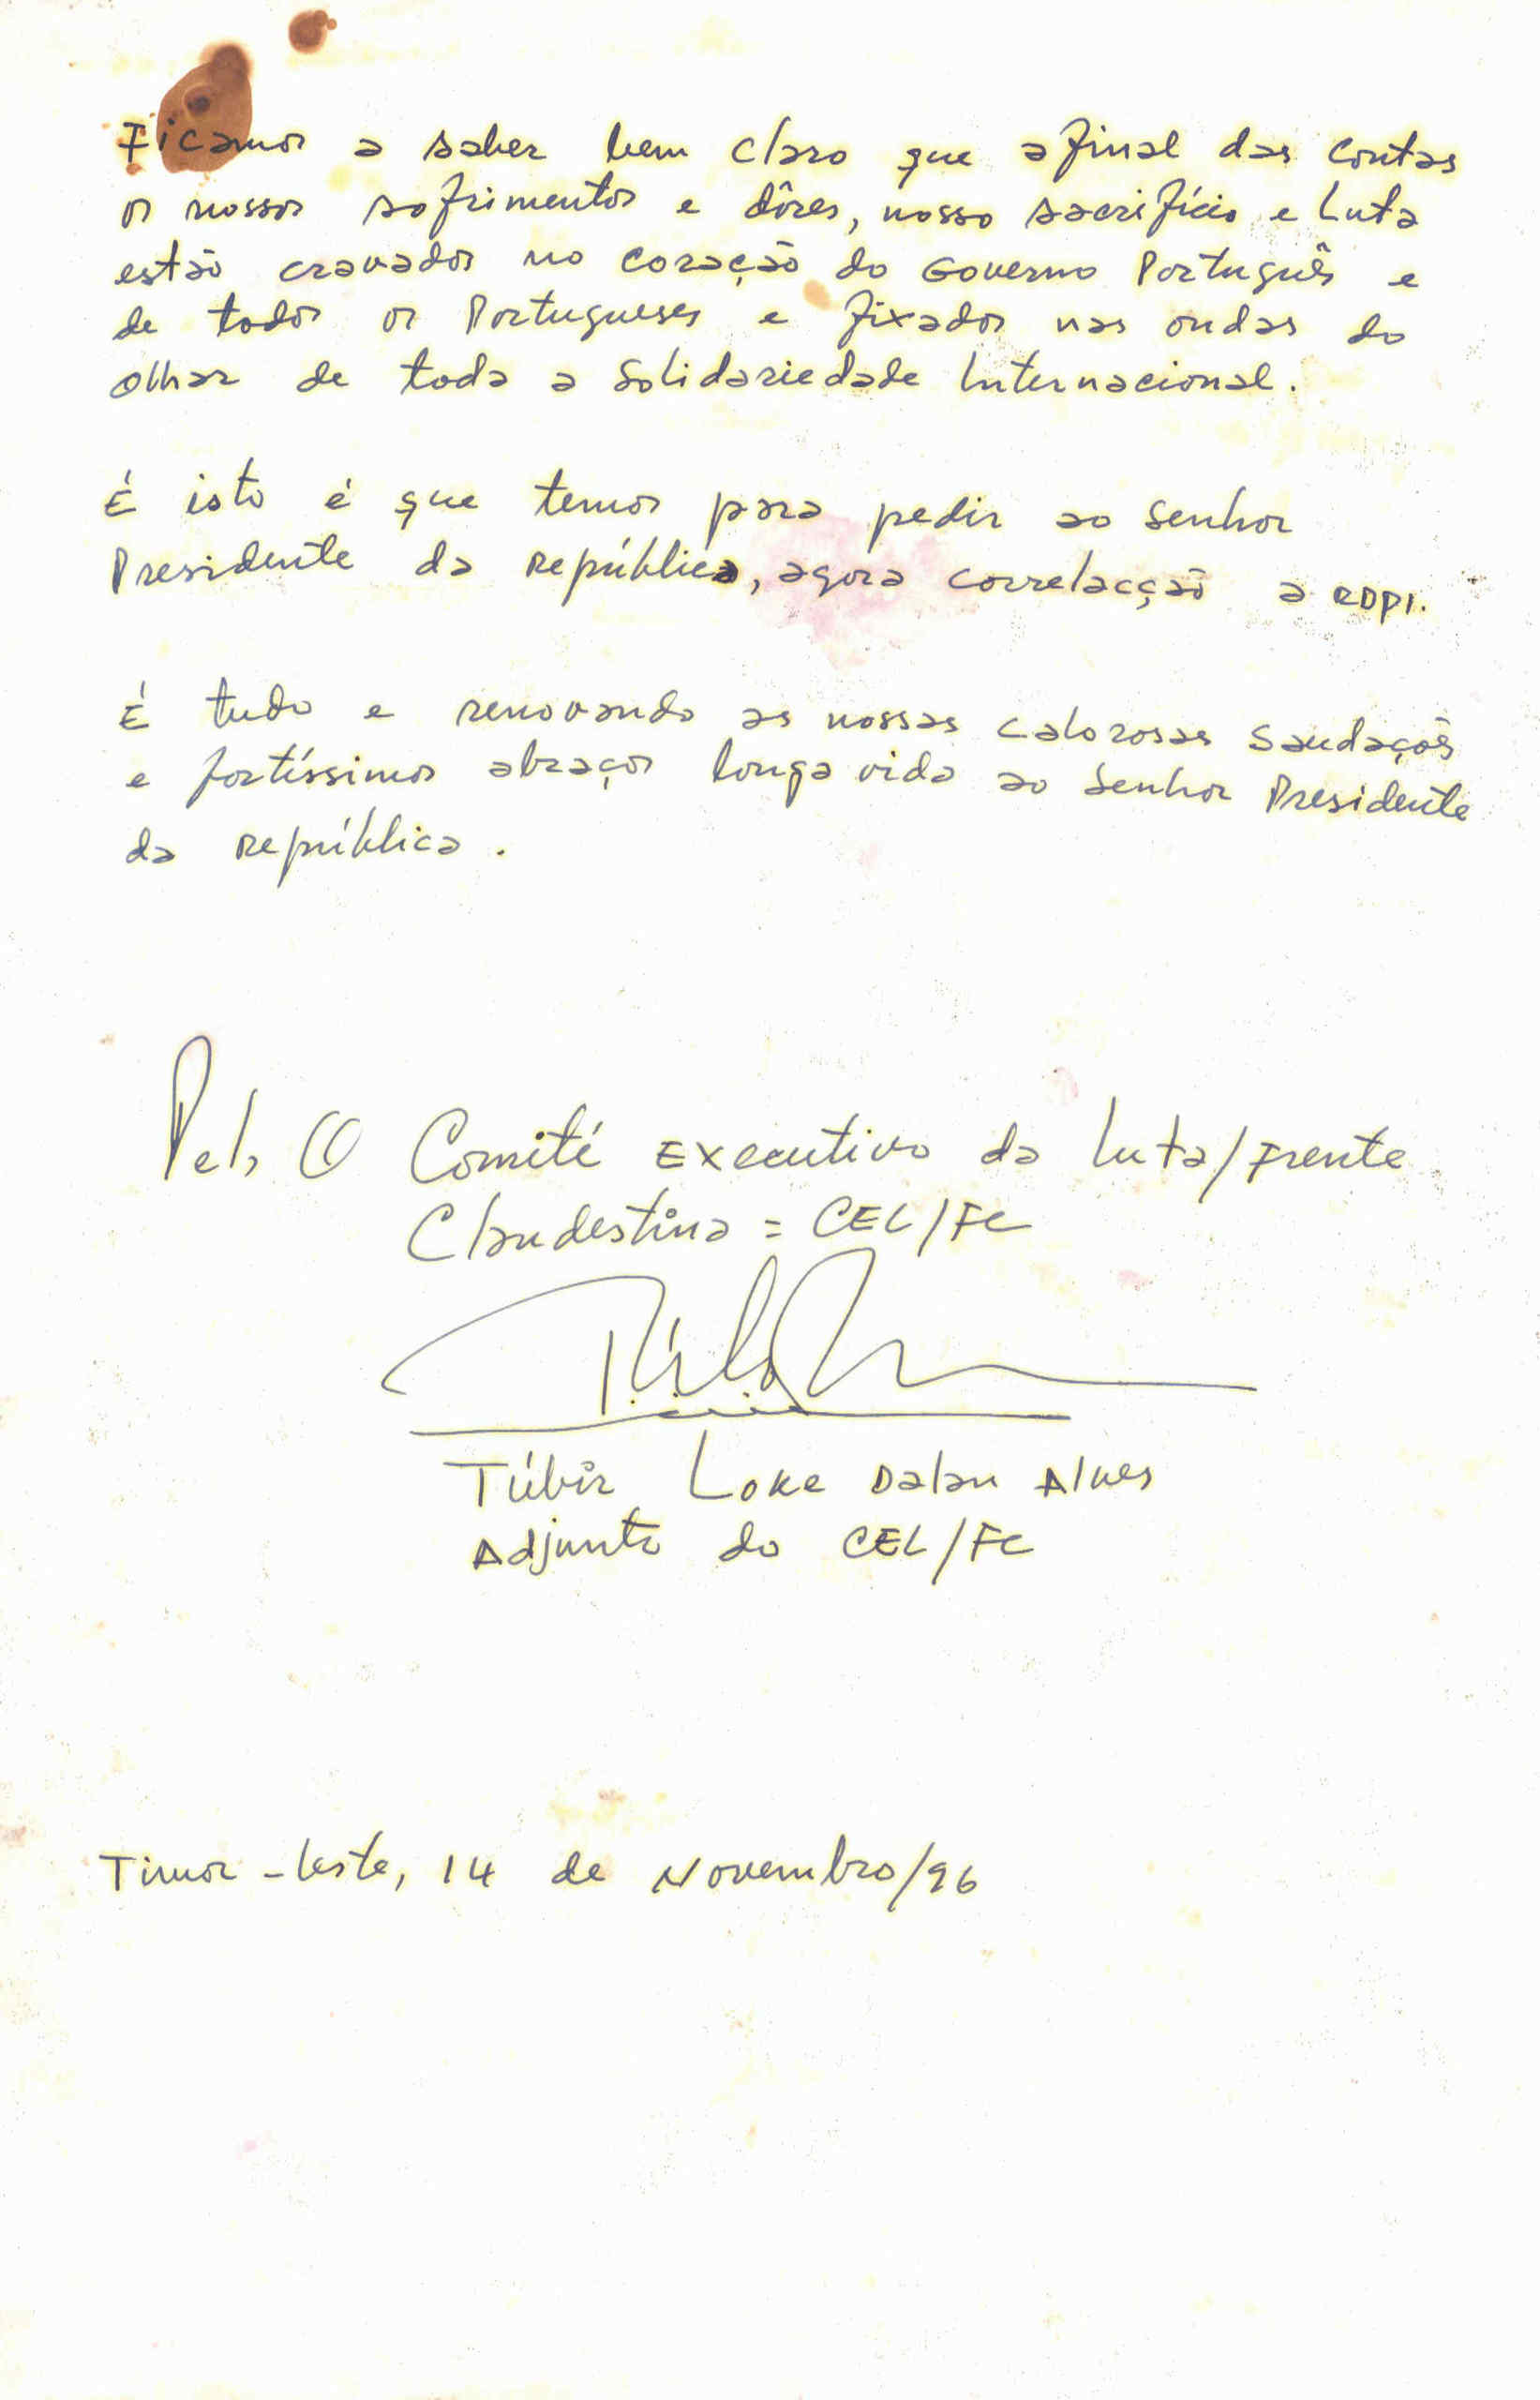 Ficamos a saber bem claro que afinal das contas
os nossos sofrimentos e dôres, nosso sacrifício e Luta
estão cravados no coração do Governo Português e
de todos os Portugueses e fixados nas ondas do
olhar de toda a Solidariedade Internacional.
É isto é que temos para pedir ao Senhor
Presidente da República, agora correlacção a RDPI.
É tudo e renovando as nossas calorosas saudações
e fortíssimos abraços longa vida ao Senhor Presidente
da República.
Pel, O Comité Executivo da Luta/Frente
Clandestina = CEL/FC
Túbir Loke Dalan Alves
Adjunto do CEL/FC
Timor-Leste, 14 de Novembro/96